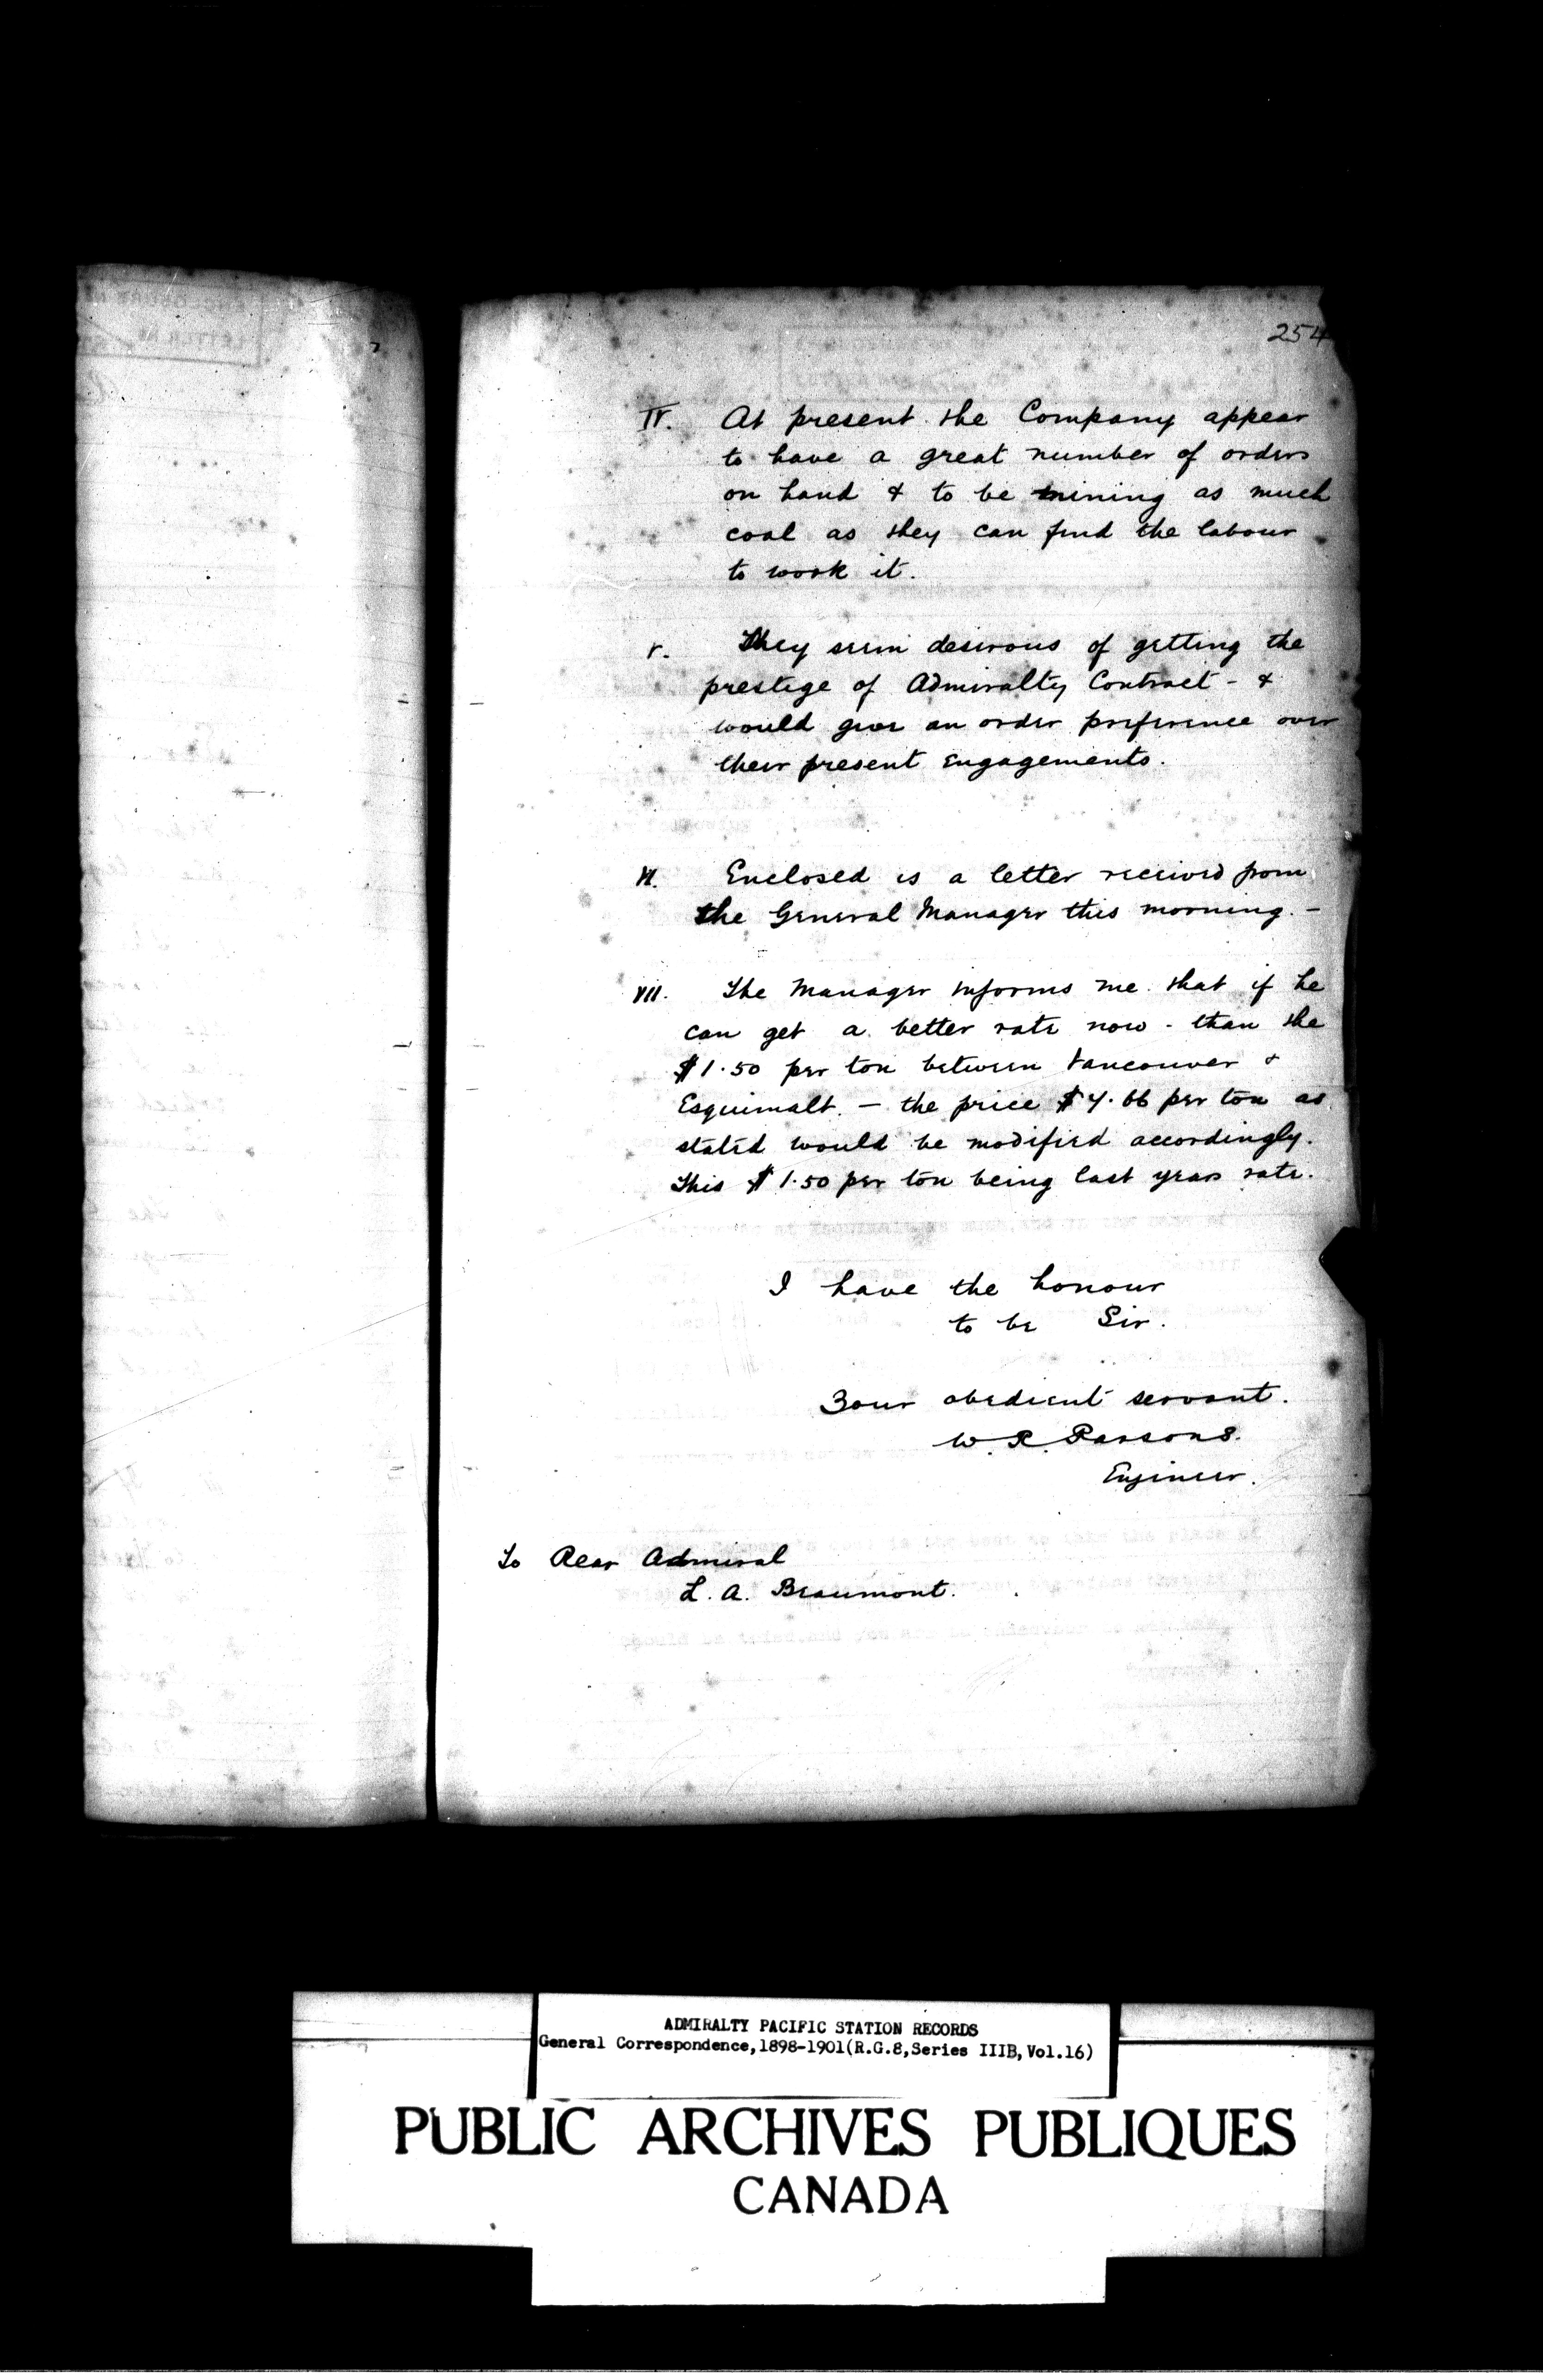 254
IV. At present the Company appear
to have a great number of orders
on hand & to be mining as much
coal as they can find the labour
to work it.
V. They seem desirous of getting the
prestige of Admiralty Contract - &
would give an order preference over
their present Engagements.
VI. Enclosed is a letter received from
the General Manager this morning. -
VII. The Manager informs me that if he
can get a better rate now - than the
$1.50 per ton between Vancouver &
Esquimalt. - the price $4.66 per ton as
stated would be modified accordingly.
This $1.50 per ton being last years rate.
I have the honour
to be Sir.
Your obedient servant.
W. R. Parsons.
Engineer.
To Rear Admiral
L. A. Beaumont.
ADMIRALTY PACIFIC STATION RECORDS
General Correspondence,1898-1901(R.G.8,Series IIIB,Vol.16)
PUBLIC ARCHIVES PUBLIQUES
CANADA